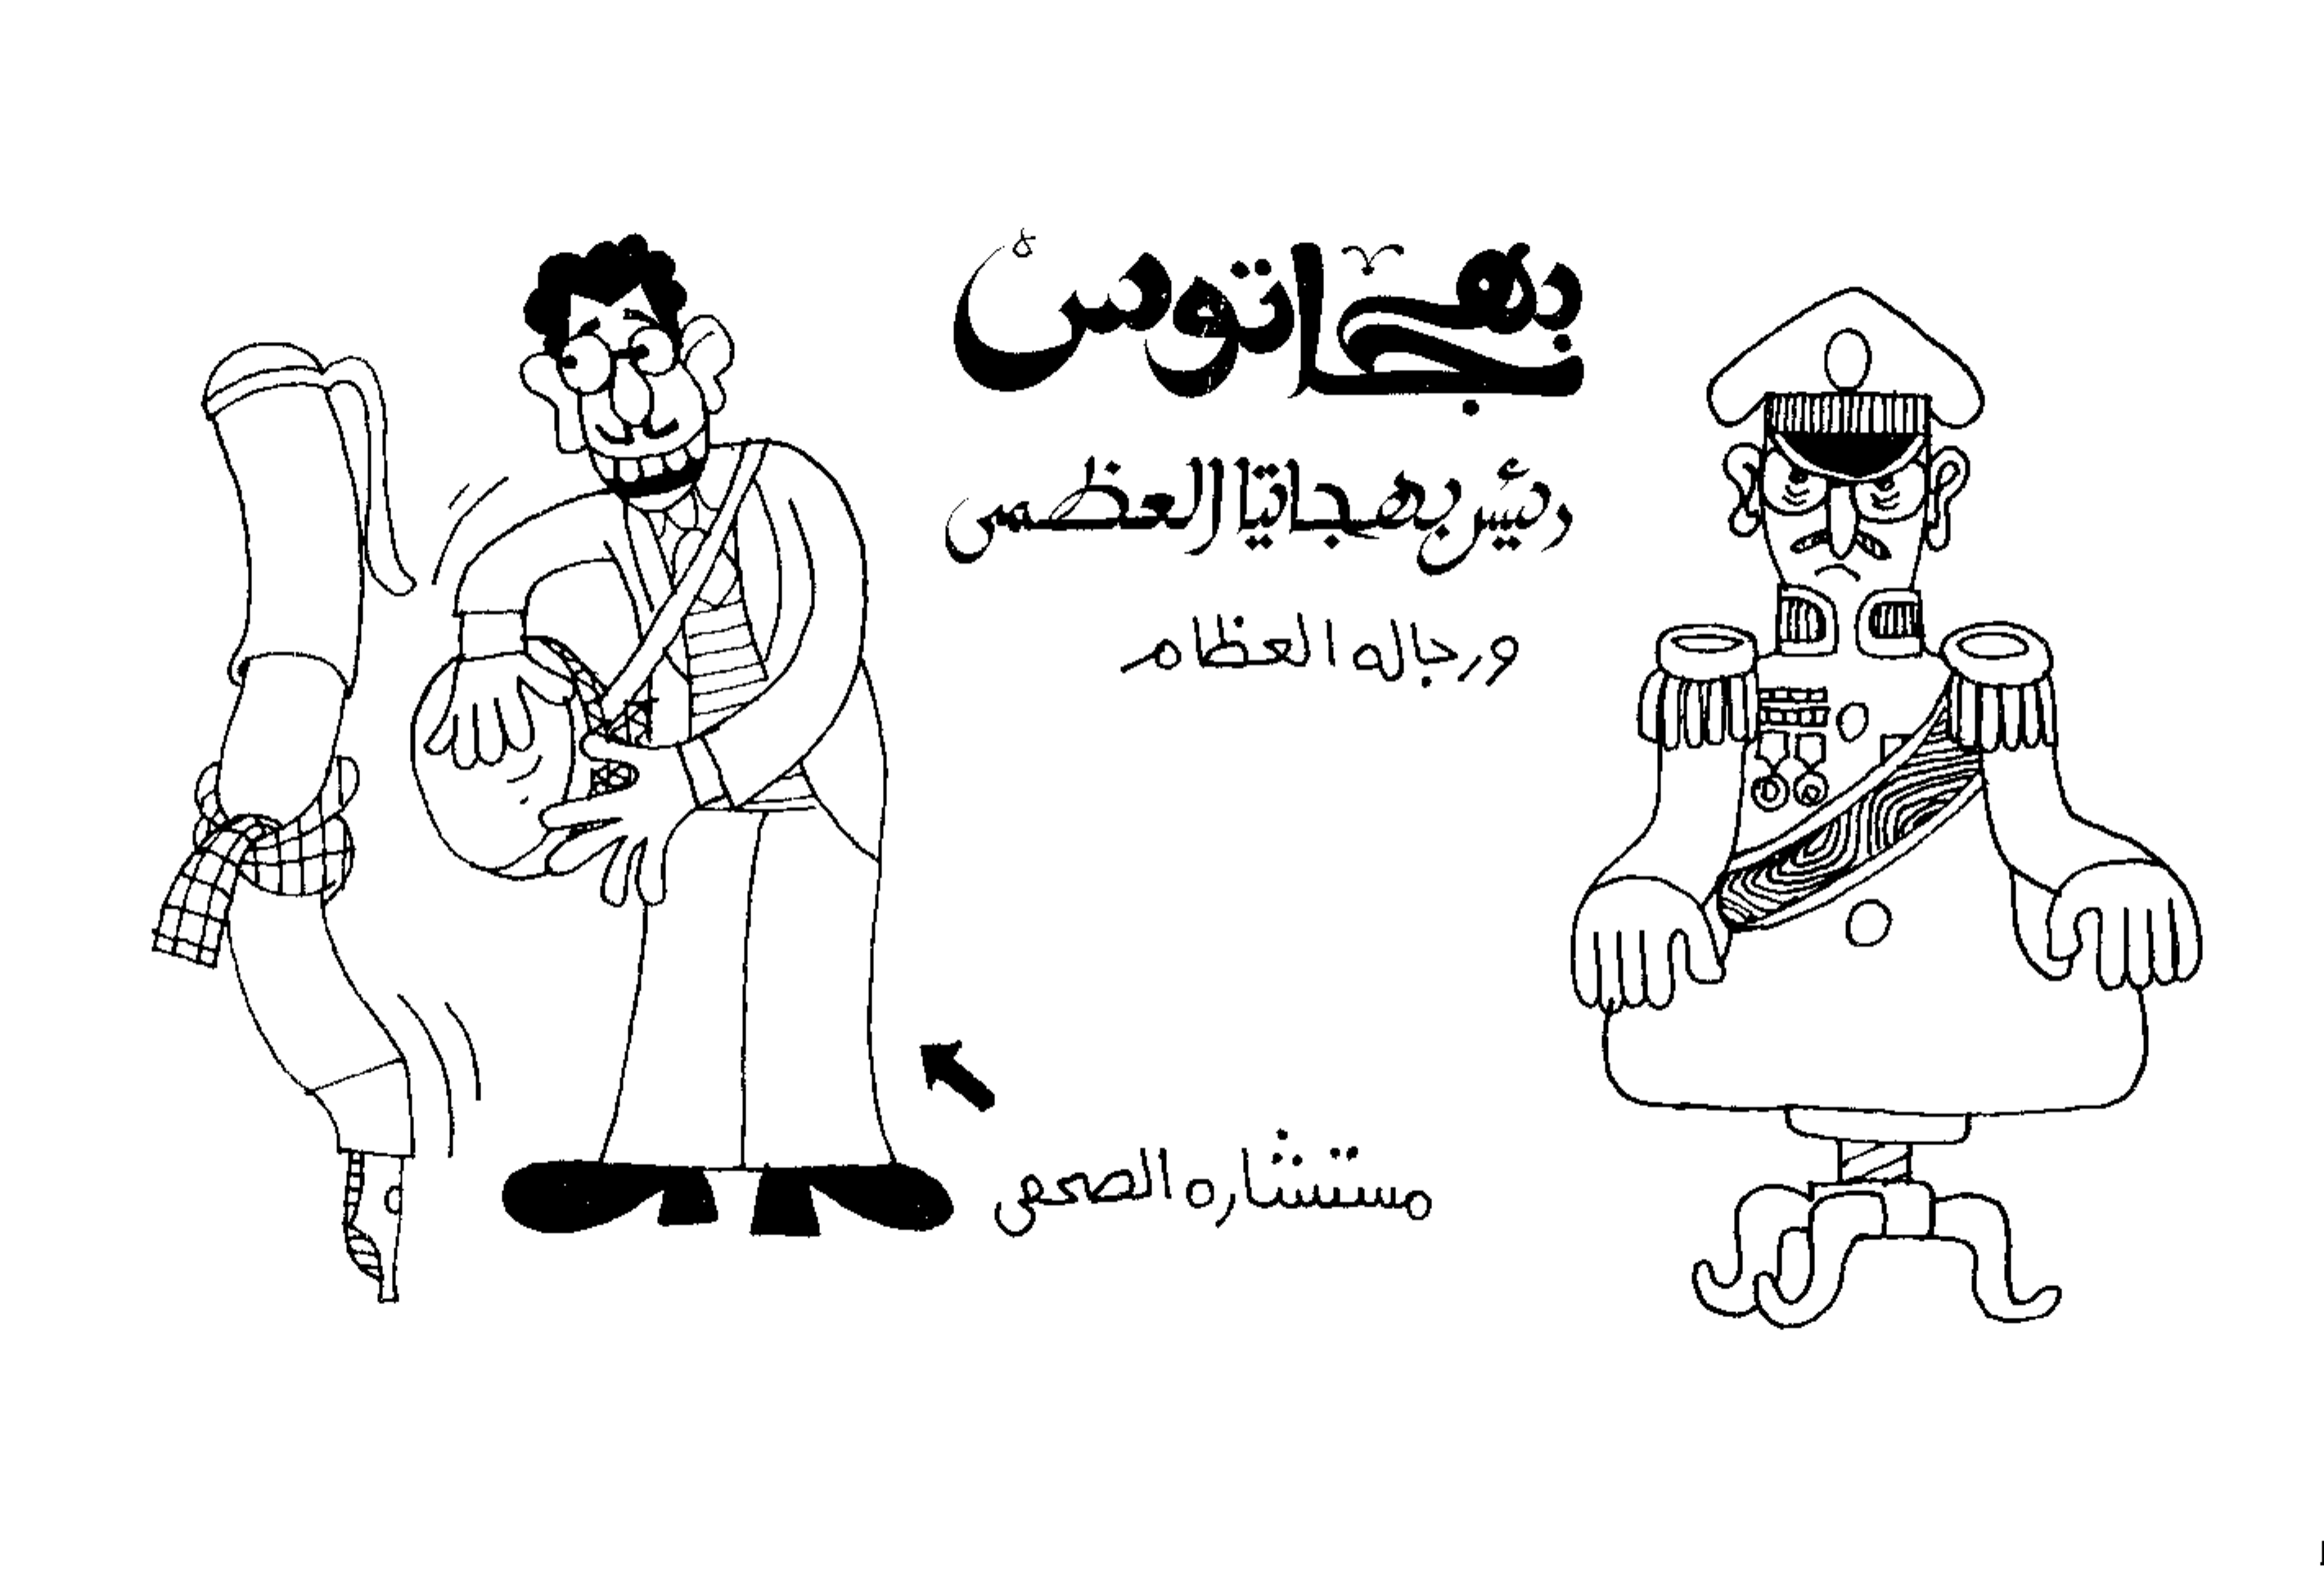 بهجاتوس
رئيس بهجاتيا العظمى
ورجاله العظام
مستشاره الصحفى